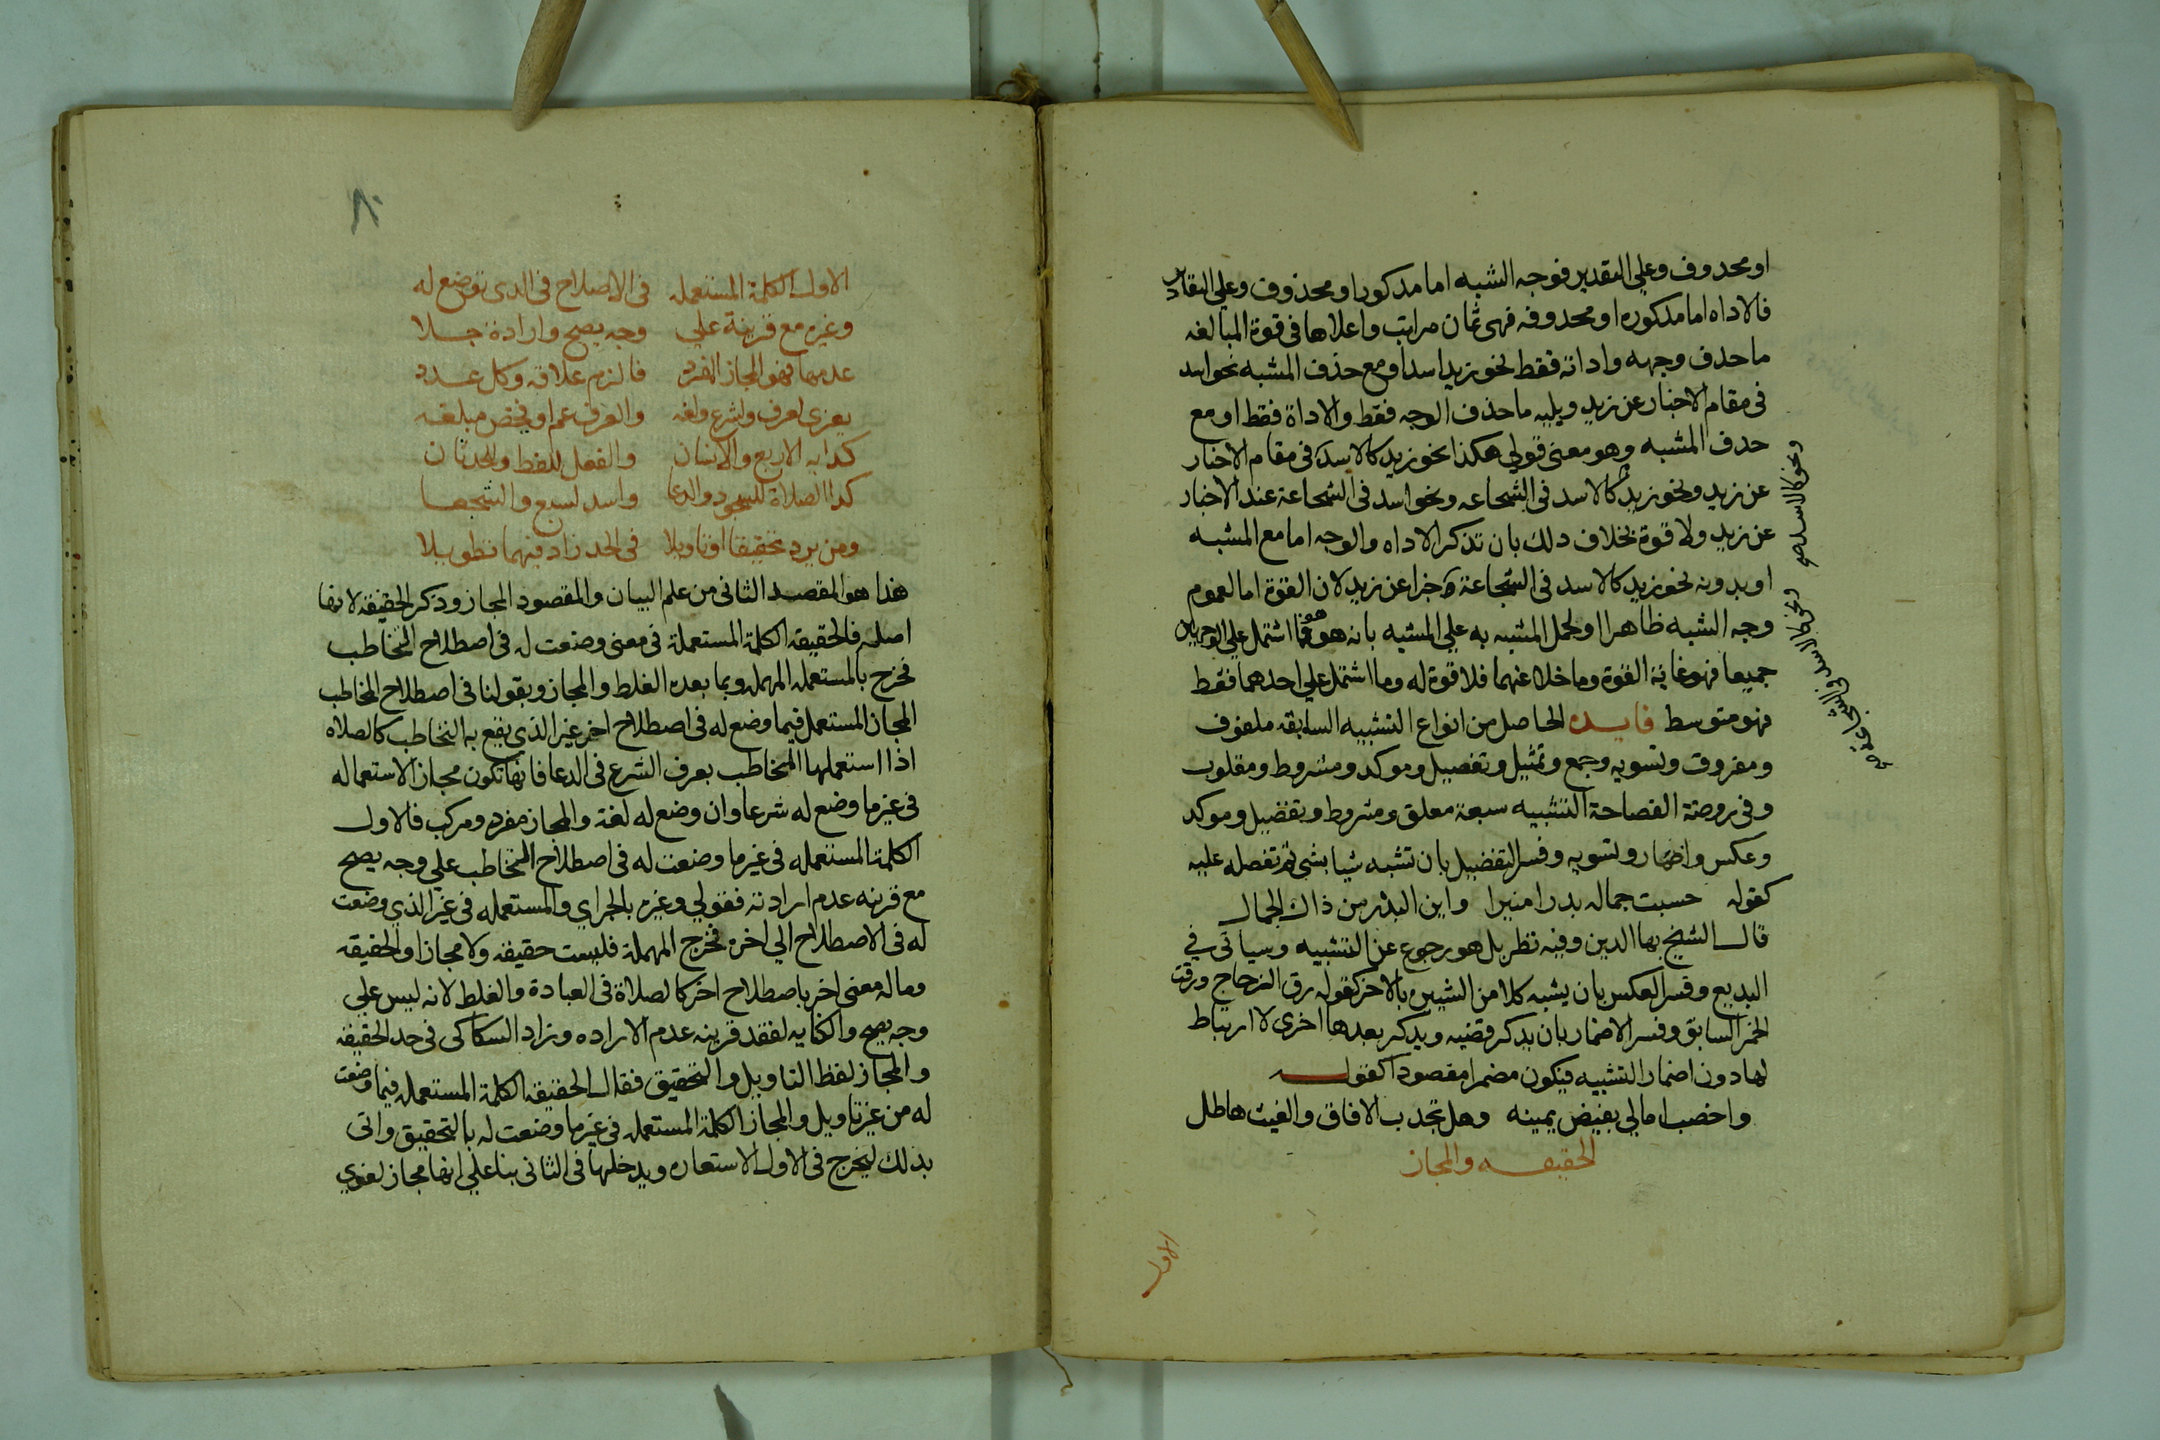 او محدوف وعلي التقدير فوجه الشبه اما مدكور او محذوف وعلي التقادير
فالاداه اما مدكوره او محدوفه فهى ثمان مراتب واعلاها فى قوة المبالغه
ما حدف وجهه واداته فقط نحو زيد اسد او مع حذف المشبه نحو اسد
فى مقام الاخبار عن زيد ويليه ما حذف الوجه فقط والاداة فقط او مع
حدف المشبه وهو معنى قولي هكذا نحو زيد كالاسد فى مقام الاخبار
عن زيد ونحو زيد كالاسد فى الشجاعه ونحو اسد فى الشجاعة عند الاخبار
عن زيد ولا قوة بخلاف دلك بان تذكر الاداه والوجه اما مع المشبه
او بدونه نحو زيد كالاسد فى الشجاعة خبرا عن زيد لان القوة اما لعموم
وجه الشبه ظاهرا او لحمل المشبه به علي المشبه بانه هو هو فما اشتمل علي الوجهين
جميعا فهو غاية القوة وما خلا عنهما فلا قوة له وما اشتمل علي احدهما فقط
فهو متوسط فايده الحاصل من انواع التشبيه السابقه ملفوف
ومفروق وتسويه وجمع وتمثيل وتفصيل وموكد ومشروط ومقلوب
وفى روضة الفصاحة التشبيه سبعة معلق ومشروط وتفضيل وموكد
وعكس واضمار وتسويه وفسر التفضيل بان تشبه شيا بشى ثم تفضله عليه
كقوله حسبت جماله بدرا منيرا واين البدر من ذاك الجمال
قال الشيخ بها الدين وفيه نظر بل هو رجوع عن التشبيه وسياتى في
البديع وفسر العكس بان يشبه كلا من الشيين بالاخر كقوله رق الزجاج ورقت
الخمر السابق وفسر الاضمار بان يدكر قضيه ويدكر بعدها اخرى لا ارتباط
لها دون اضمار التشبيه فيكون مضمرا مقصودا كقوله
واخصب امالي بفيض يمينه وهل تجدب الافاق والغيث هاطل
الحقيقه والمجاز
الاول
ونحو كالاسد صح ونحو كالاسد فى الشجاعة صح
٨٠
الاول الكلمة المستعمله فى الاصطلاح فى الدى توضع له
وغيره مع قرينة علي وجه يصح وارادة جلا
عدمها فهو المجاز المفرد فالزم علاقه وكل عدد
يعزى لعرف ولشرع ولغه والعرف عم او يخص مبلغه
كدابه الاربع والانسان والفعل للفظ وللحدثان
كدا الصلاة للسجود والدعا واسد لسبع والشجعا
ومن يرد تحقيقا او تاويلا فى الحد زاد فيهما تطويلا
هذا هو المقصد الثانى من علم البيان والمقصود المجاز وذكر الحقيقه لانها
اصله فالحقيقه الكلمة المستعملة فى معنى وضعت له فى اصطلاح التخاطب
فخرج بالمستعمله المهمله وبما بعده الغلط والمجاز وبقولنا فى اصطلاح التخاطب
المجاز المستعمل فيما وضع له فى اصطلاح اخر غير الذى يقع به التخاطب كالصلاه
اذا استعملها المخاطب بعرف الشرع فى الدعا فانها تكون مجاز الاستعماله
فى غير ما وضع له شرعا وان وضع له لغة والمجاز مفرد ومركب فالاول
الكلمة المستعمله فى غير ما وضعت له فى اصطلاح التخاطب علي وجه يصح
مع قرينه عدم ارادته فقولي وغيره بالجر اي والمستعمله فى غير الذي وضعت
له فى الاصطلاح الى اخره فخرج المهملة فليست حقيقه ولا مجازا والحقيقه
وما له معنى اخر باصطلاح اخر كالصلاة فى العبادة والغلط لانه ليس علي
وجه يصح والكنايه لفقد قرينه عدم الاراده وزاد السكاكى فى حد الحقيقه
والمجاز لفظ التاويل والتحقيق فقال الحقيقه الكلمة المستعمله فيما وضعت
له من غير تاويل والمجاز الكلمة المستعمله فى غير ما وضعت له بالتحقيق واتى
بذلك ليخرج فى الاول الاستعاره ويدخلها فى الثانى بنا علي انها مجاز لغوي